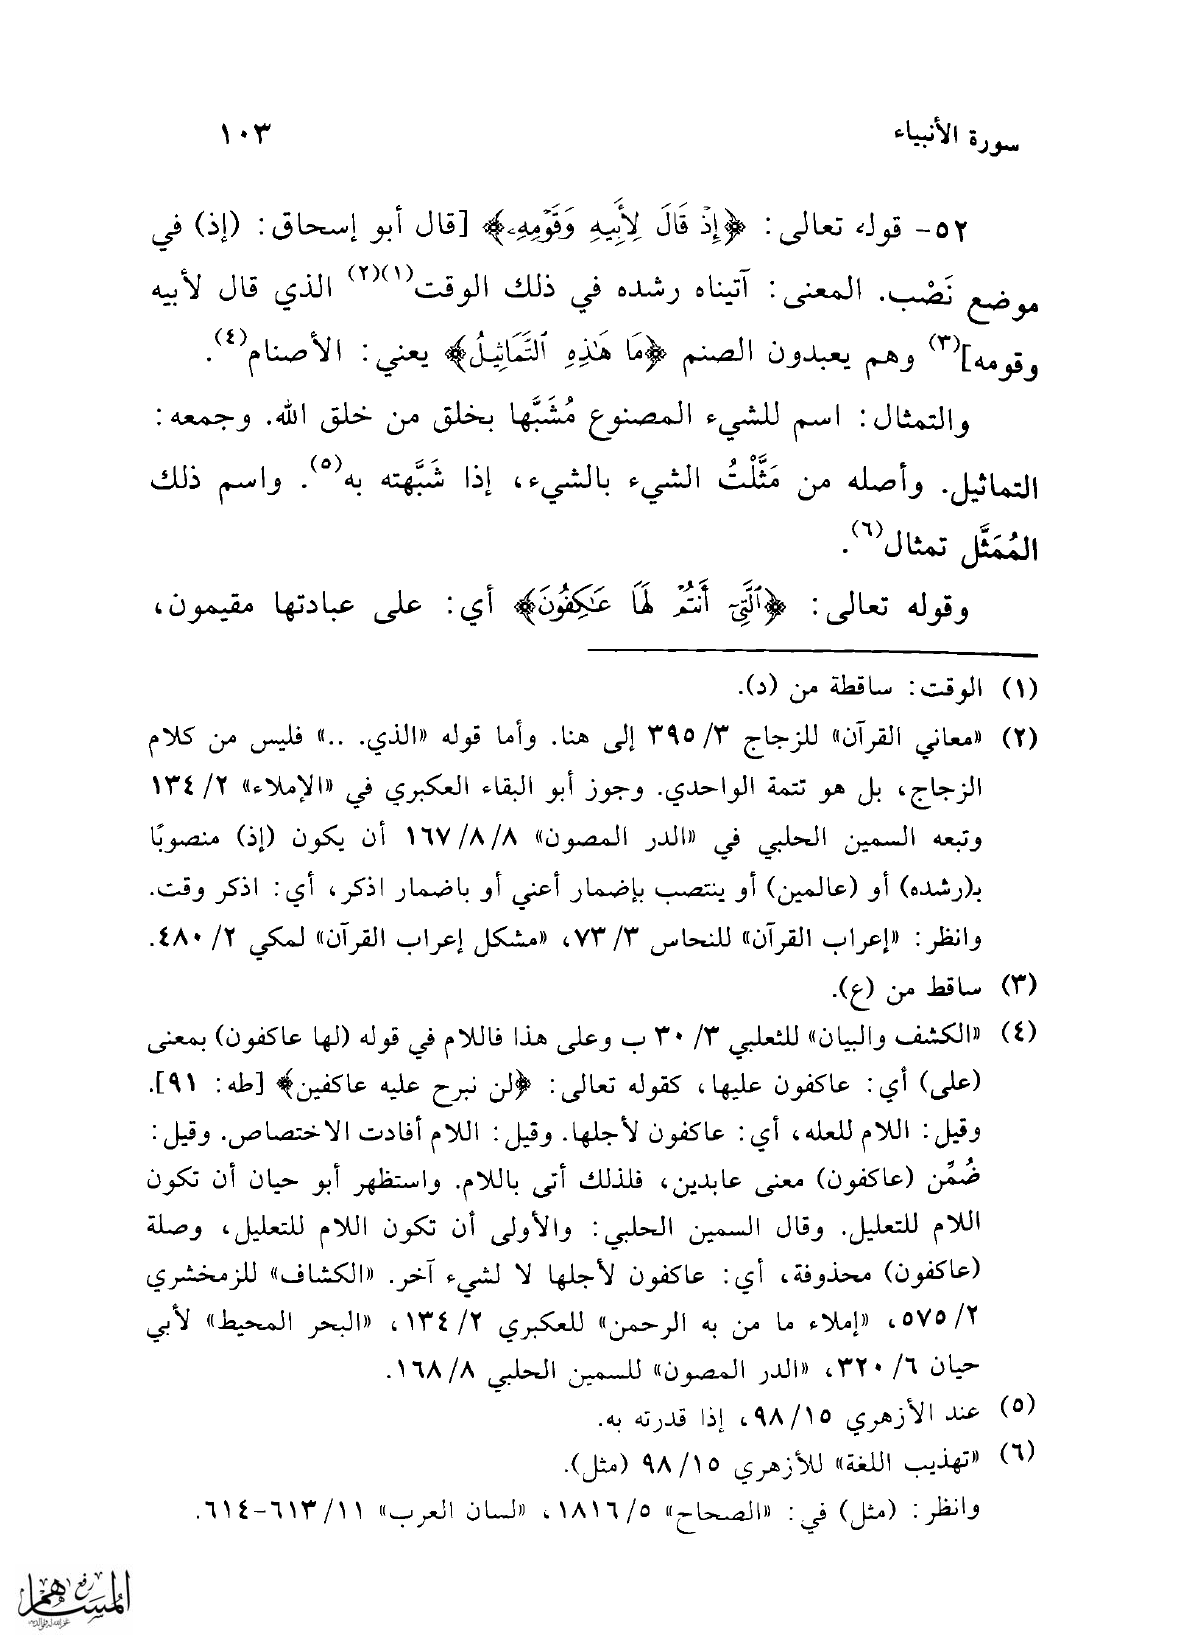 سورة الأنبياء
١٠٣
٥٢- قوله تعالى: ﴿إِذْ قَالَ لِأَبِيهِ وَقَوْمِهِۦ﴾ [قال أبو إسحاق: (إذ) في
موضع نَصْب. المعنى: آتيناه رشده في ذلك الوقت(١)(٢) الذي قال لأبيه
وقومه](٣) وهم يعبدون الصنم ﴿مَا هَٰذِهِ ٱلتَّمَاثِيلُ﴾ يعني: الأصنام(٤).
والتمثال: اسم للشيء المصنوع مُشَبَّها بخلق من خلق الله. وجمعه:
التماثيل. وأصله من مَثَّلْتُ الشيء بالشيء، إذا شَبَّهته به(٥). واسم ذلك
المُمَثَّل تمثال(٦).
وقوله تعالى: ﴿ٱلَّتِىٓ أَنتُمْ لَهَا عَٰكِفُونَ﴾ أي: على عبادتها مقيمون،
(١) الوقت: ساقطة من (د).
(٢) «معاني القرآن» للزجاج ٣/ ٣٩٥ إلى هنا. وأما قوله «الذي. ..» فليس من كلام
الزجاج، بل هو تتمة الواحدي. وجوز أبو البقاء العكبري في «الإملاء» ٢/ ١٣٤
وتبعه السمين الحلبي في «الدر المصون» ٨/ ٨/ ١٦٧ أن يكون (إذ) منصوبًا
بـ(رشده) أو (عالمين) أو ينتصب بإضمار أعني أو باضمار اذكر، أي: اذكر وقت.
وانظر: «إعراب القرآن» للنحاس ٣/ ٧٣، «مشكل إعراب القرآن» لمكي ٢/ ٤٨٠.
(٣) ساقط من (ع).
(٤) «الكشف والبيان» للثعلبي ٣/ ٣٠ ب وعلى هذا فاللام في قوله (لها عاكفون) بمعنى
(على) أي: عاكفون عليها، كقوله تعالى: ﴿لن نبرح عليه عاكفين﴾ [طه: ٩١].
وقيل: اللام للعله، أي: عاكفون لأجلها. وقيل: اللام أفادت الاختصاص. وقيل:
ضُمِّن (عاكفون) معنى عابدين، فلذلك أتى باللام. واستظهر أبو حيان أن تكون
اللام للتعليل. وقال السمين الحلبي: والأولى أن تكون اللام للتعليل، وصلة
(عاكفون) محذوفة، أي: عاكفون لأجلها لا لشيء آخر. «الكشاف» للزمخشري
٢/ ٥٧٥، «إملاء ما من به الرحمن» للعكبري ٢/ ١٣٤، «البحر المحيط» لأبي
حيان ٦/ ٣٢٠، «الدر المصون» للسمين الحلبي ٨/ ١٦٨.
(٥) عند الأزهري ١٥/ ٩٨، إذا قدرته به.
(٦) «تهذيب اللغة» للأزهري ١٥/ ٩٨ (مثل).
وانظر: (مثل) في: «الصحاح» ٥/ ١٨١٦، «لسان العرب» ١١/ ٦١٣-٦١٤.